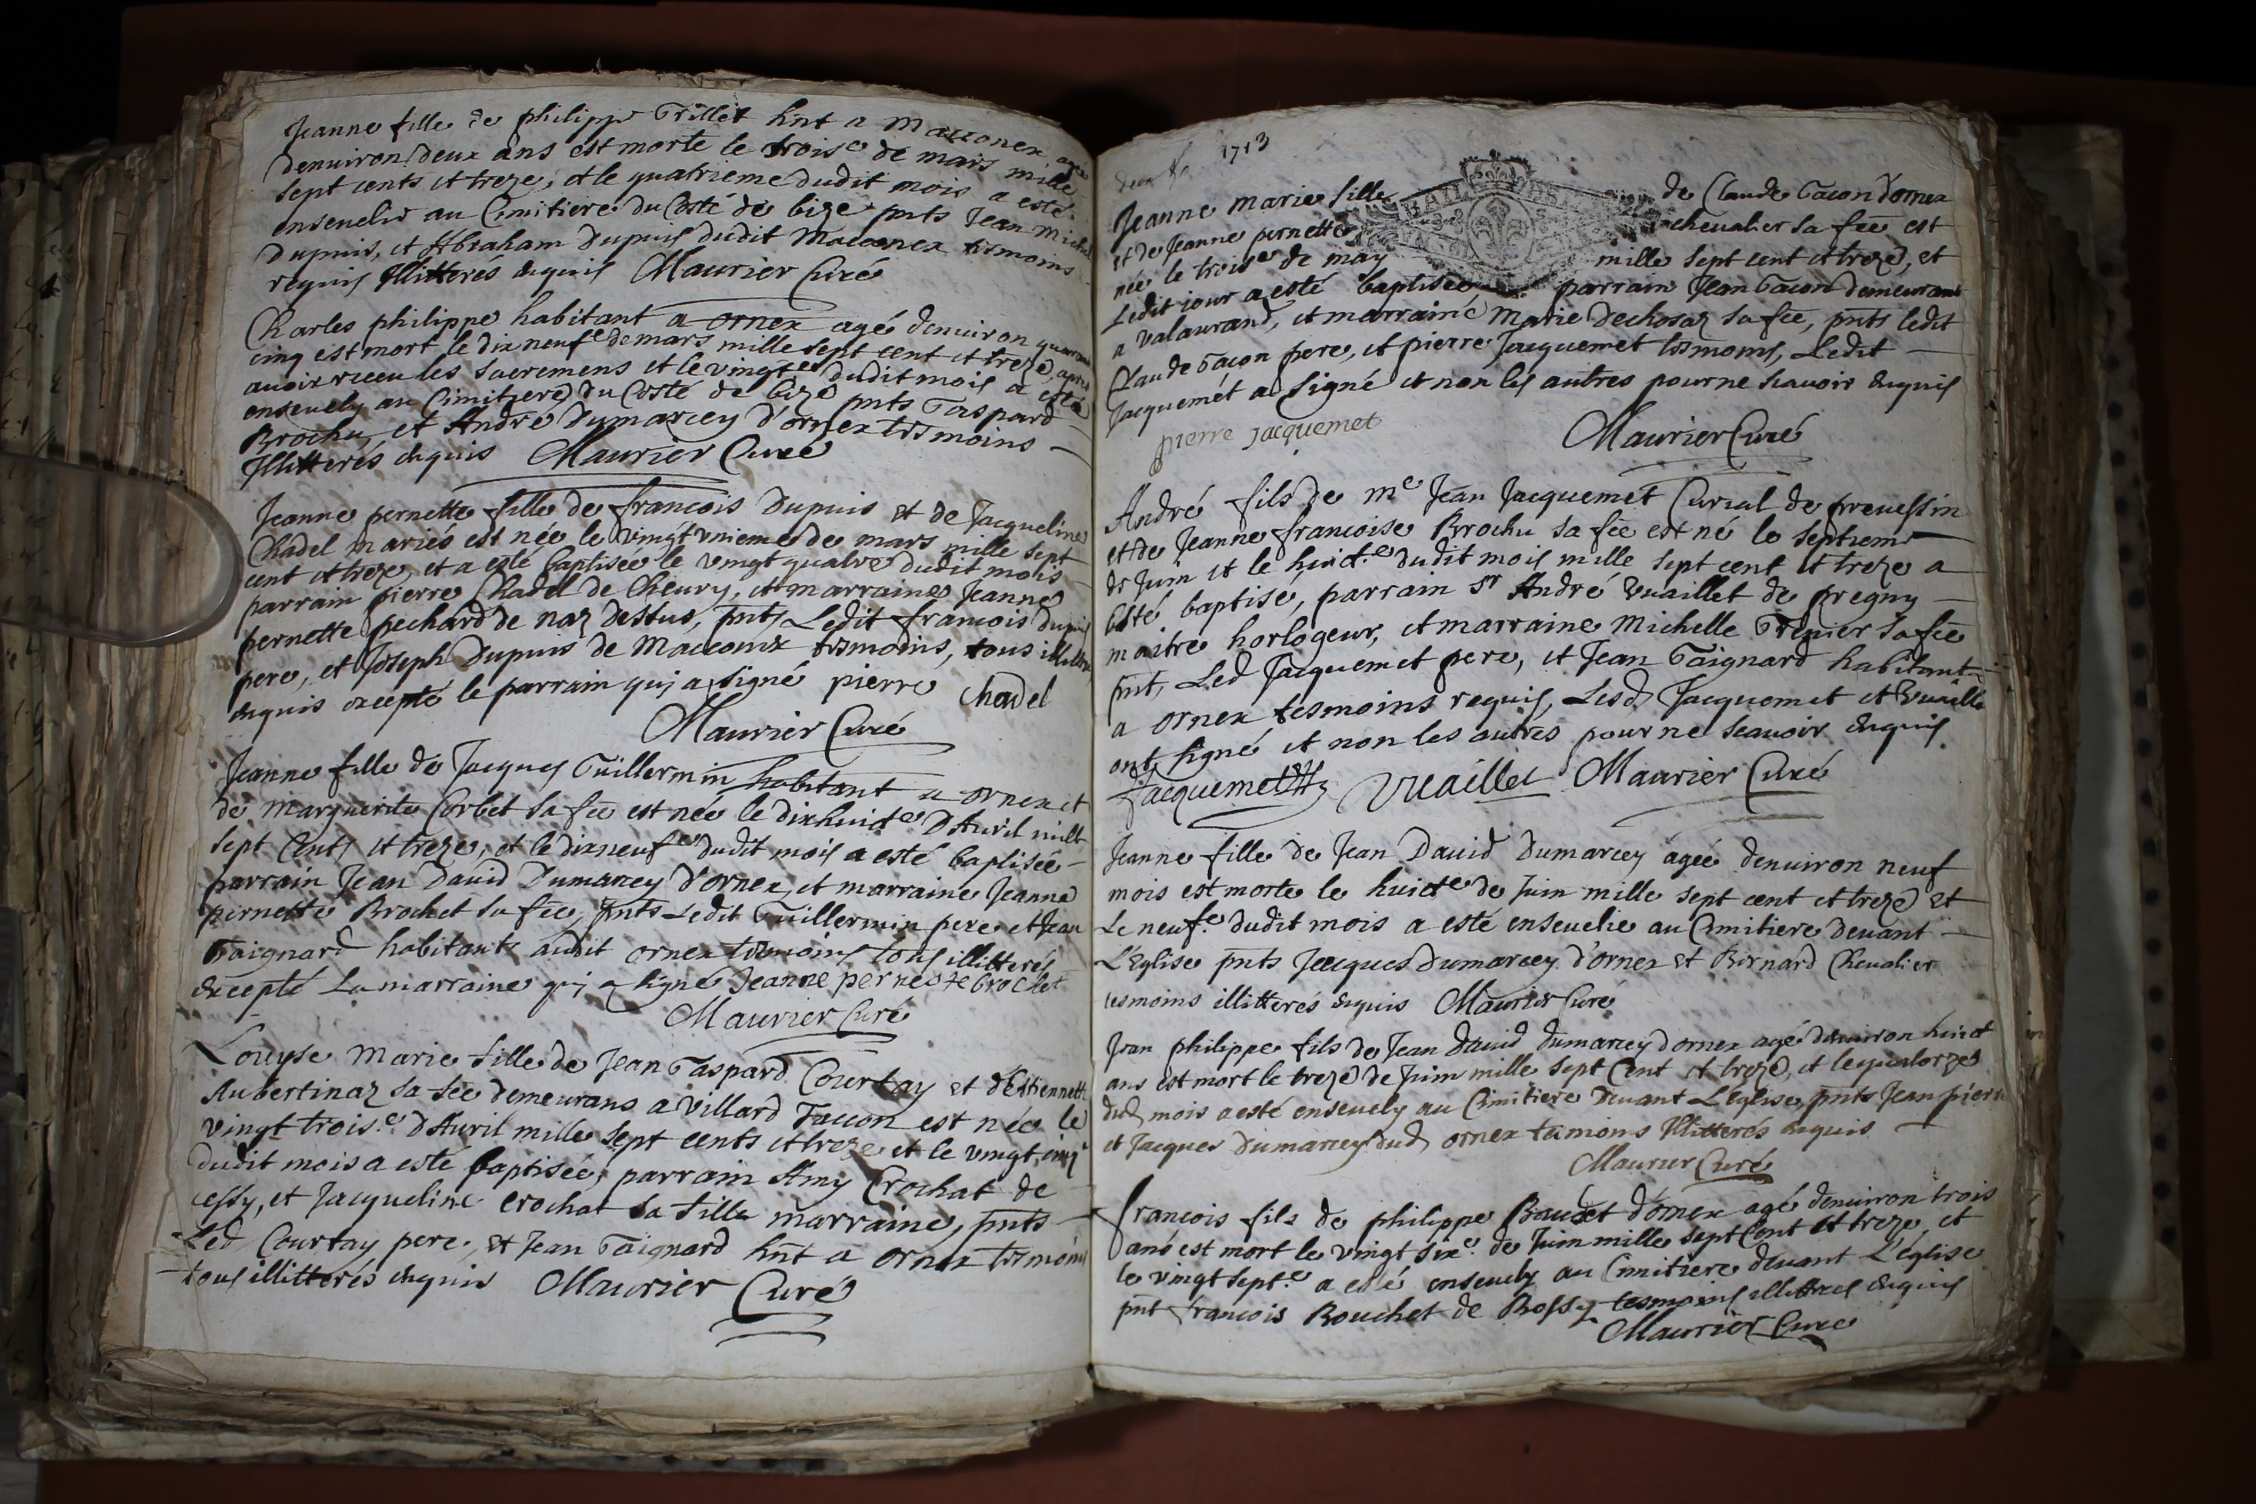 Jeanne fille de philippe Trillet hnt a Macconex, agée
denuiron deux ans est morte le troise de mars mille
sept cents et treze, et le quatrieme dudit mois a esté
enseuelie au Cimitiere du Costé de bize pnts Jean Michel
Dupuis, et Abraham Dupuis dudit Macconex tesmoins
requis Illitterés enquis Maurier Curé
Charles philippe habitant a ornex agé denuiron quarante
cinq est mort le dix neufe de mars mille sept cent et treze, apres
auoir receu les sacremens et le vingte dudit mois a esté
enseuely au Cimitiere du Costé de bize pnts Gaspard
Brochu, et André Dumarcey d'ornex tesmoins
Illitterés enquis Maurier Curé
Jeanne pernette fille de francois Dupuis et de Jacqueline
Chadel mariés est née le vingt vnieme de mars mille sept
cent et treze, et a esté baptisée le vingt quatre dudit mois
parrain pierre Chadel de Cheury, et marraine Jeanne
pernette pechard de naz dessus, pnts Ledit francois dupuis
pere, et Joseph Dupuis de Macconix tesmoins, tous illittres
enquis excepté le parrain qui a signé pierre Chadel
Maurier Curé
Jeanne fille de Jacques Guillermin habitant a ornex et
de Marguerite Corbet sa fee est née le dixhuicte D'Auril mille
sept Cents et treze, et le dixneufe dudit mois a esté baptisée
parrain Jean Dauid Dumarcey d'ornex, et marraine Jeanne
pernette Brochet sa fee, pnts Ledit Guillermin pere et Jean
Gaignard habitants audit ornex tesmoins tous illitterés
excepté La marraine qui a signé Jeanne pernette brochet
Maurier Curé
Louyse Marie fille de Jean Gaspard Courtay et d'Estiennette
Aubertinaz sa fee demeurans a Villard Taccon est née le
vingt troise d'Auril mille sept cents et treze et le vingt cinqe
dudit mois a esté baptisée, parrain Amy Crochat de
cessy, et Jacqueline crochat sa fille marraine, pnts
Led Courtay pere, et Jean Gaignard hnt a ornex tesmoins
tous illitterés enquis Maurier Curé
1713
Jeanne marie fille de Claude Tacon d'ornex
et de Jeanne pernette chevalier sa fee est
née le troise de may mille sept cent et treze, et
Ledit iour a esté baptisée, parrain Jean Tacon demeurant
a Valaurand, et marraine Marie Dechosaz sa fee, pnts ledit
Claude Tacon pere, et pierre Jacquemet tesmoins, Ledit
Jacquemet a signé et non les autres pour ne scauoir enquis
pierre jacquemet Maurier Curé
André fils de me Jean Jacquemet Curial de preuessin
et de Jeanne francoise Brochu sa fee est né le septieme
de Juin et le huicte dudit mois mille sept cent et treze a
esté baptisé, parrain sr André Vuaillet de pregny
maitre horlogeur, et marraine Michelle Grenier sa fee
pnt, Led Jacquemet pere, et Jean Gaignard habitant
a ornex tesmoins requis, Lesd Jacquemet et Vuaillet
ont signé et non les autres pour ne scauoir enquis
Jacquemet Vuaillet Maurier Curé
Jeanne fille de Jean Dauid Dumarcey agée denuiron neuf
mois est morte le huicte de Juin mille sept cent et treze et
Le neufe dudit mois a esté enseuelie au Cimitiere deuant
L'Eglise pnts Jacques Dumarcey d'ornex et Bernard Cheualier
tesmoins illitterés enquis Maurier Curé
Jean philippe fils de Jean Dauid dumarcey dornex agé denuiron huict
ans est mort le treze de Juin mille sept Cent et treze, et le quatorze
dud mois a esté enseuely au Cimitiere Deuant L'eglise, pnts Jean pierre
et Jacques Dumarcey dud ornex tesmoins Illitterés enquis
Maurier Curé
francois fils de philippe Bouchet d'ornex agé denuiron trois
ans est mort le vingt sixe de Juin mille sept Cent et treze, et
le vingt septe a esté enseuely au Cimitiere deuant L'église
pnt francois Bouchet de Bossy tesmoins illittres enquis
Maurier Curé